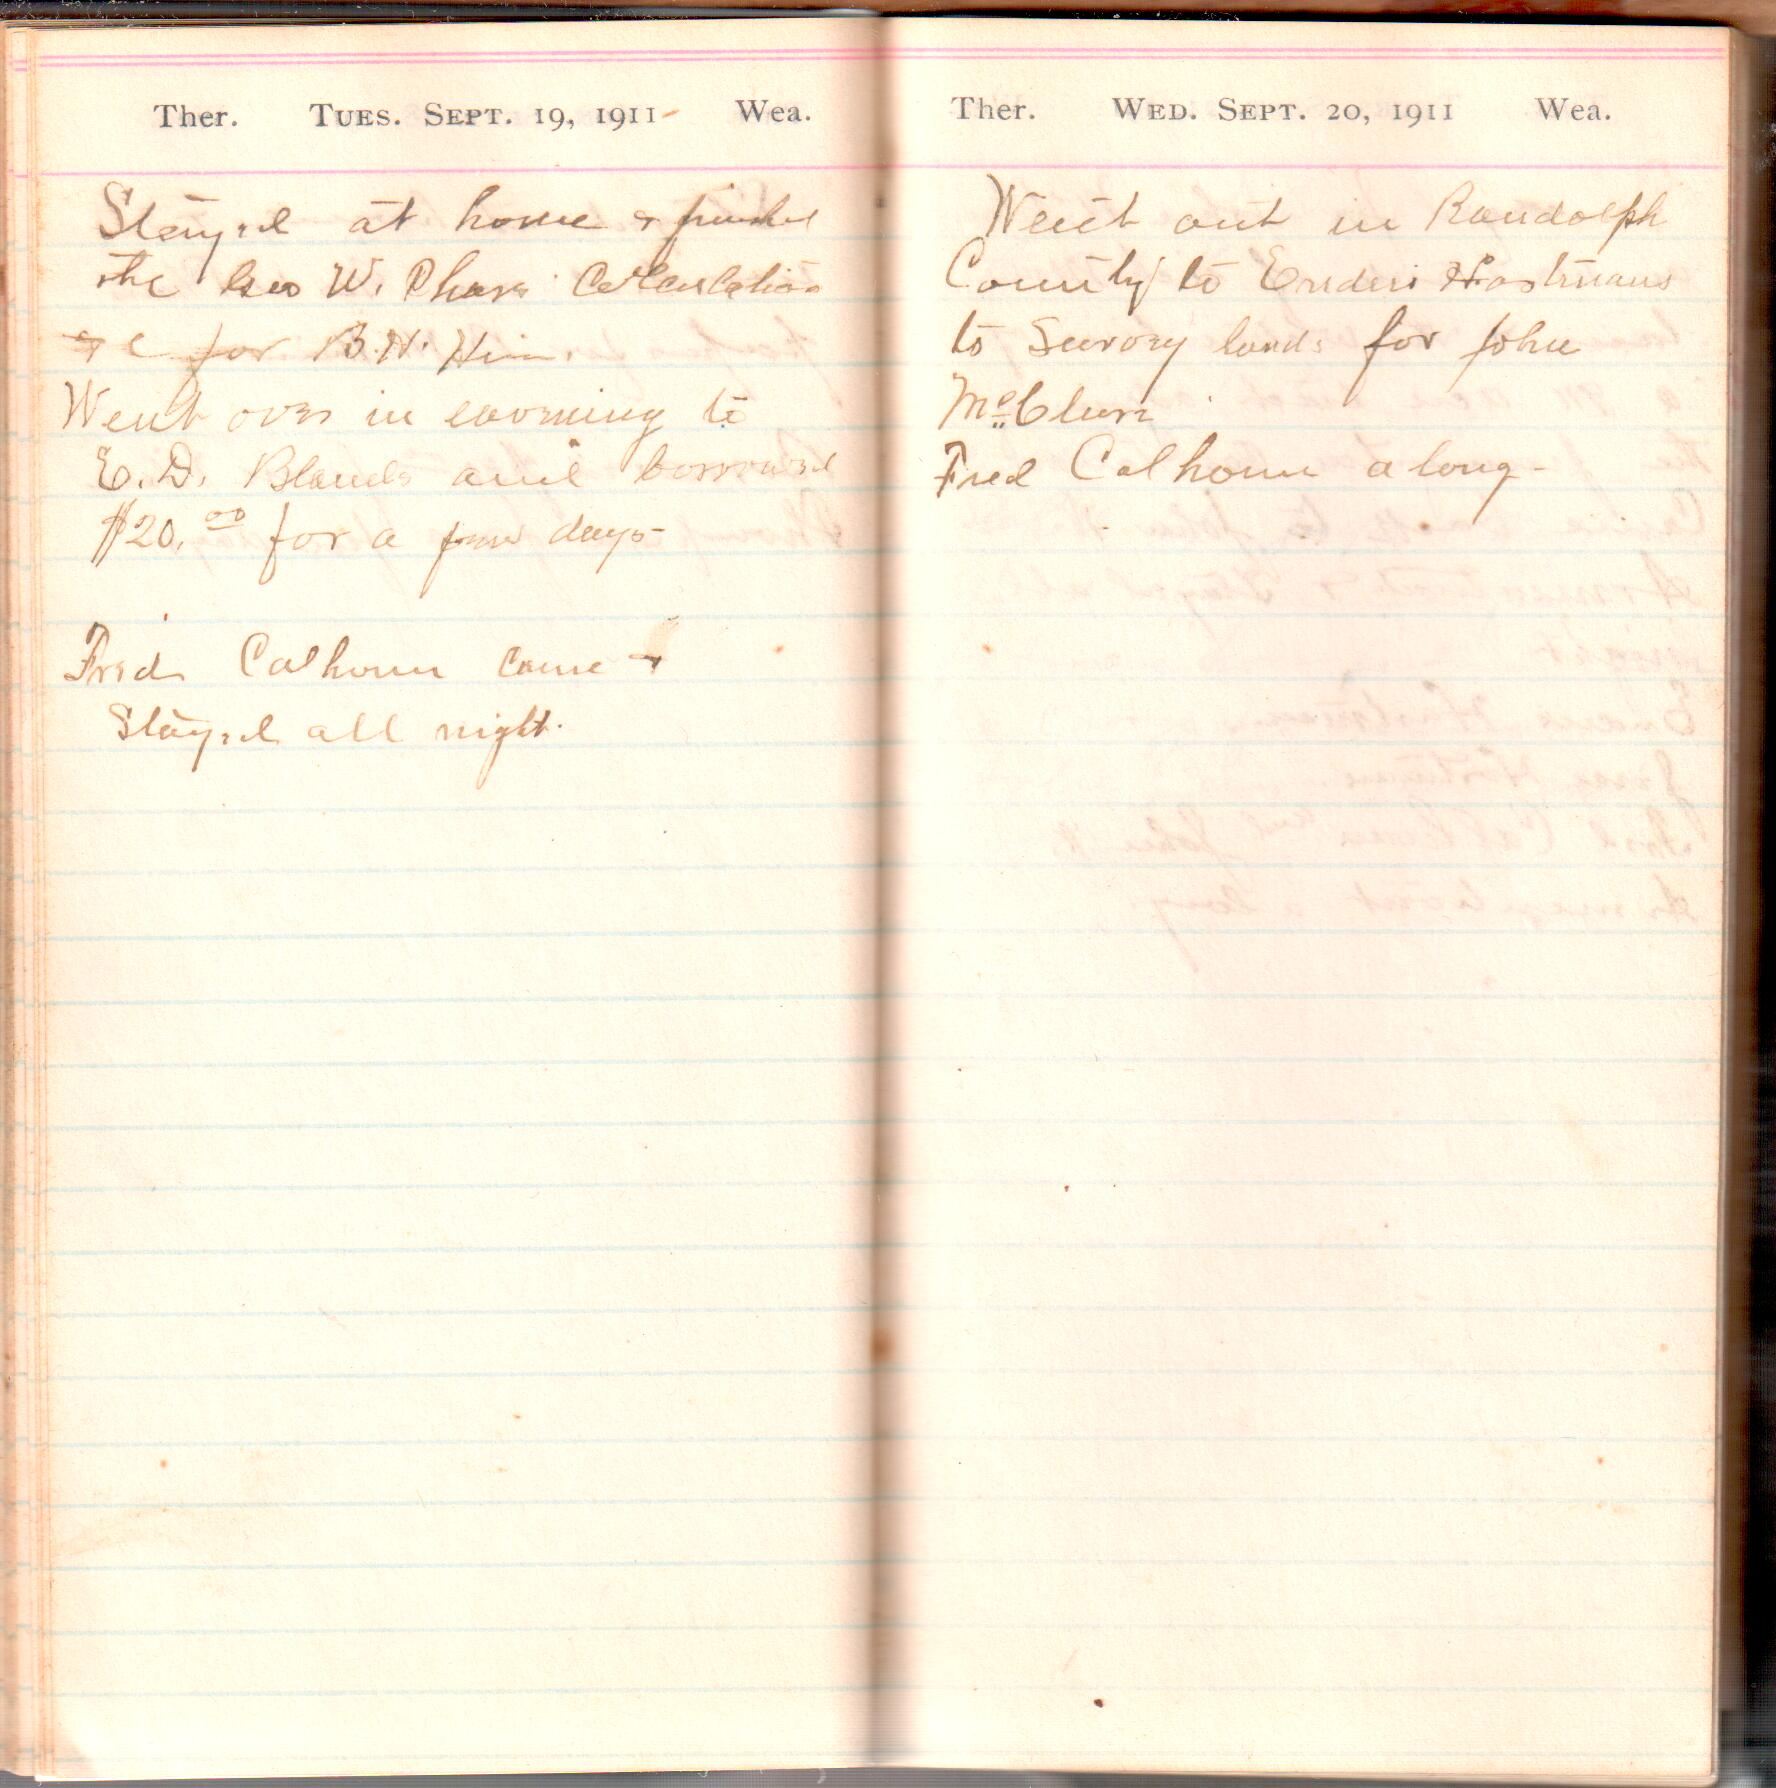 Ther. TUES. SEPT. 19, 1911 Wea.
Stayed at home &
the Geo W. Calculations
&c for B. H.
Went over in evening to
E. D. Blands and borrowed
$20.00 for a few days
Fred Calhoun came &
Stayed all night.
Ther. WED. SEPT. 20, 1911 Wea.
Went out in Randolph
County to
to Survey lands for John
McClure
Fred Calhoun along-